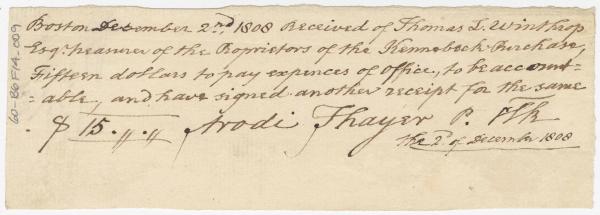 Boston December 2.nd 1808 Received of Thomas L. Winthrop
Esqr. treasurer of the Proprietors of the Kennebeck Purchase,
Fifteen dollars to pay expences of Office, to be account=
=able, and have signed another receipt for the same
$ 15.,,.,, Arodi Thayer P. Clk
the 2d. of December 1808
60-86F1A-009